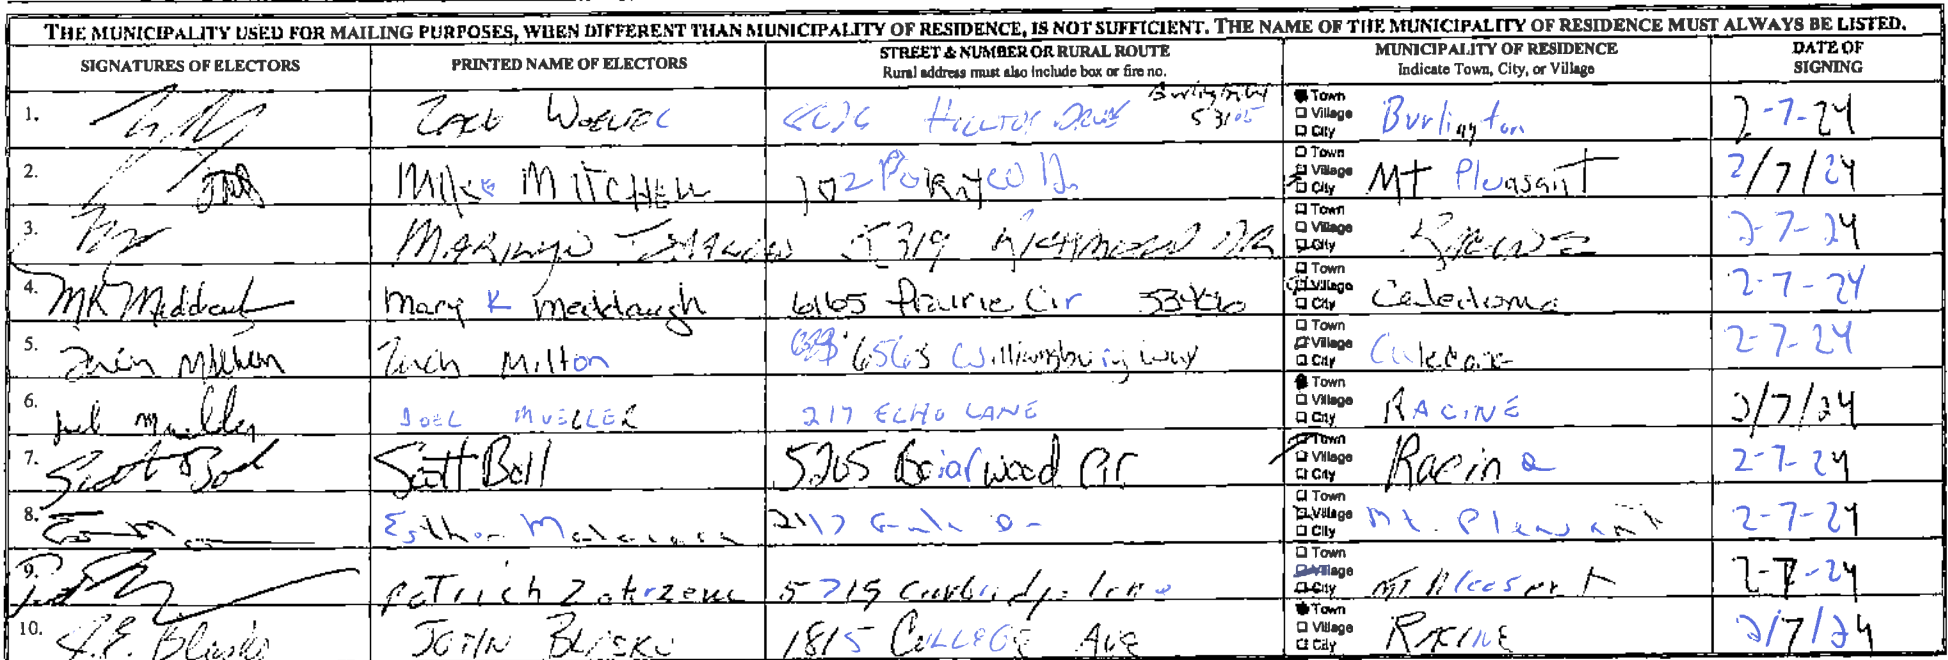 THE MUNICIPALITY USED FOR MAILING PURPOSES, WHEN DIFFERENT THAN MUNICIPALITY OF RESIDENCE, IS NOT SUFFICIENT. THE NAME OF THE MUNICIPALITY OF RESIDENCE MUST ALWAYS BE LISTED.
SIGNATURES OF ELECTORS PRINTED NAME OF ELECTORS STREET & NUMBER OR RURAL ROUTE MUNICIPALITY OF RESIDENCE DATE OF SIGNING
Rural address must also include box or fire no. Indicate Town, City, or Village
1. Hilltop Drive Burlington 53105 Town Village City Burlington 2-7-24
2. Mike Mitchell 102 Town Village City Mt Pleasant 2/7/24
3. Marilyn 5319 Richmond DR Town Village City Racine 2-7-24
4. MK Meddaugh Mary K Meddaugh 6165 Prairie Cir Town Village City Caledonia 2-7-24
5. Zach Milton Zach Milton 6563 Williamsburg Way Town Village City Caledonia 2-7-24
6. Joel Mueller JOEL MUELLER 217 ECHO LANE Town Village City RACINE 2/7/24
7. Scott Ball 5205 Briarwood Cir Town Village City Racine 2-7-24
8. 2117 Town Village City Mt. Pleasant 2-7-24
9. Patrick 5715 Cambridge Lane Town Village City Mt Pleasant 2-7-24
10. JOHN 1815 COLLEGE AVE Town Village City RACINE 2/7/24